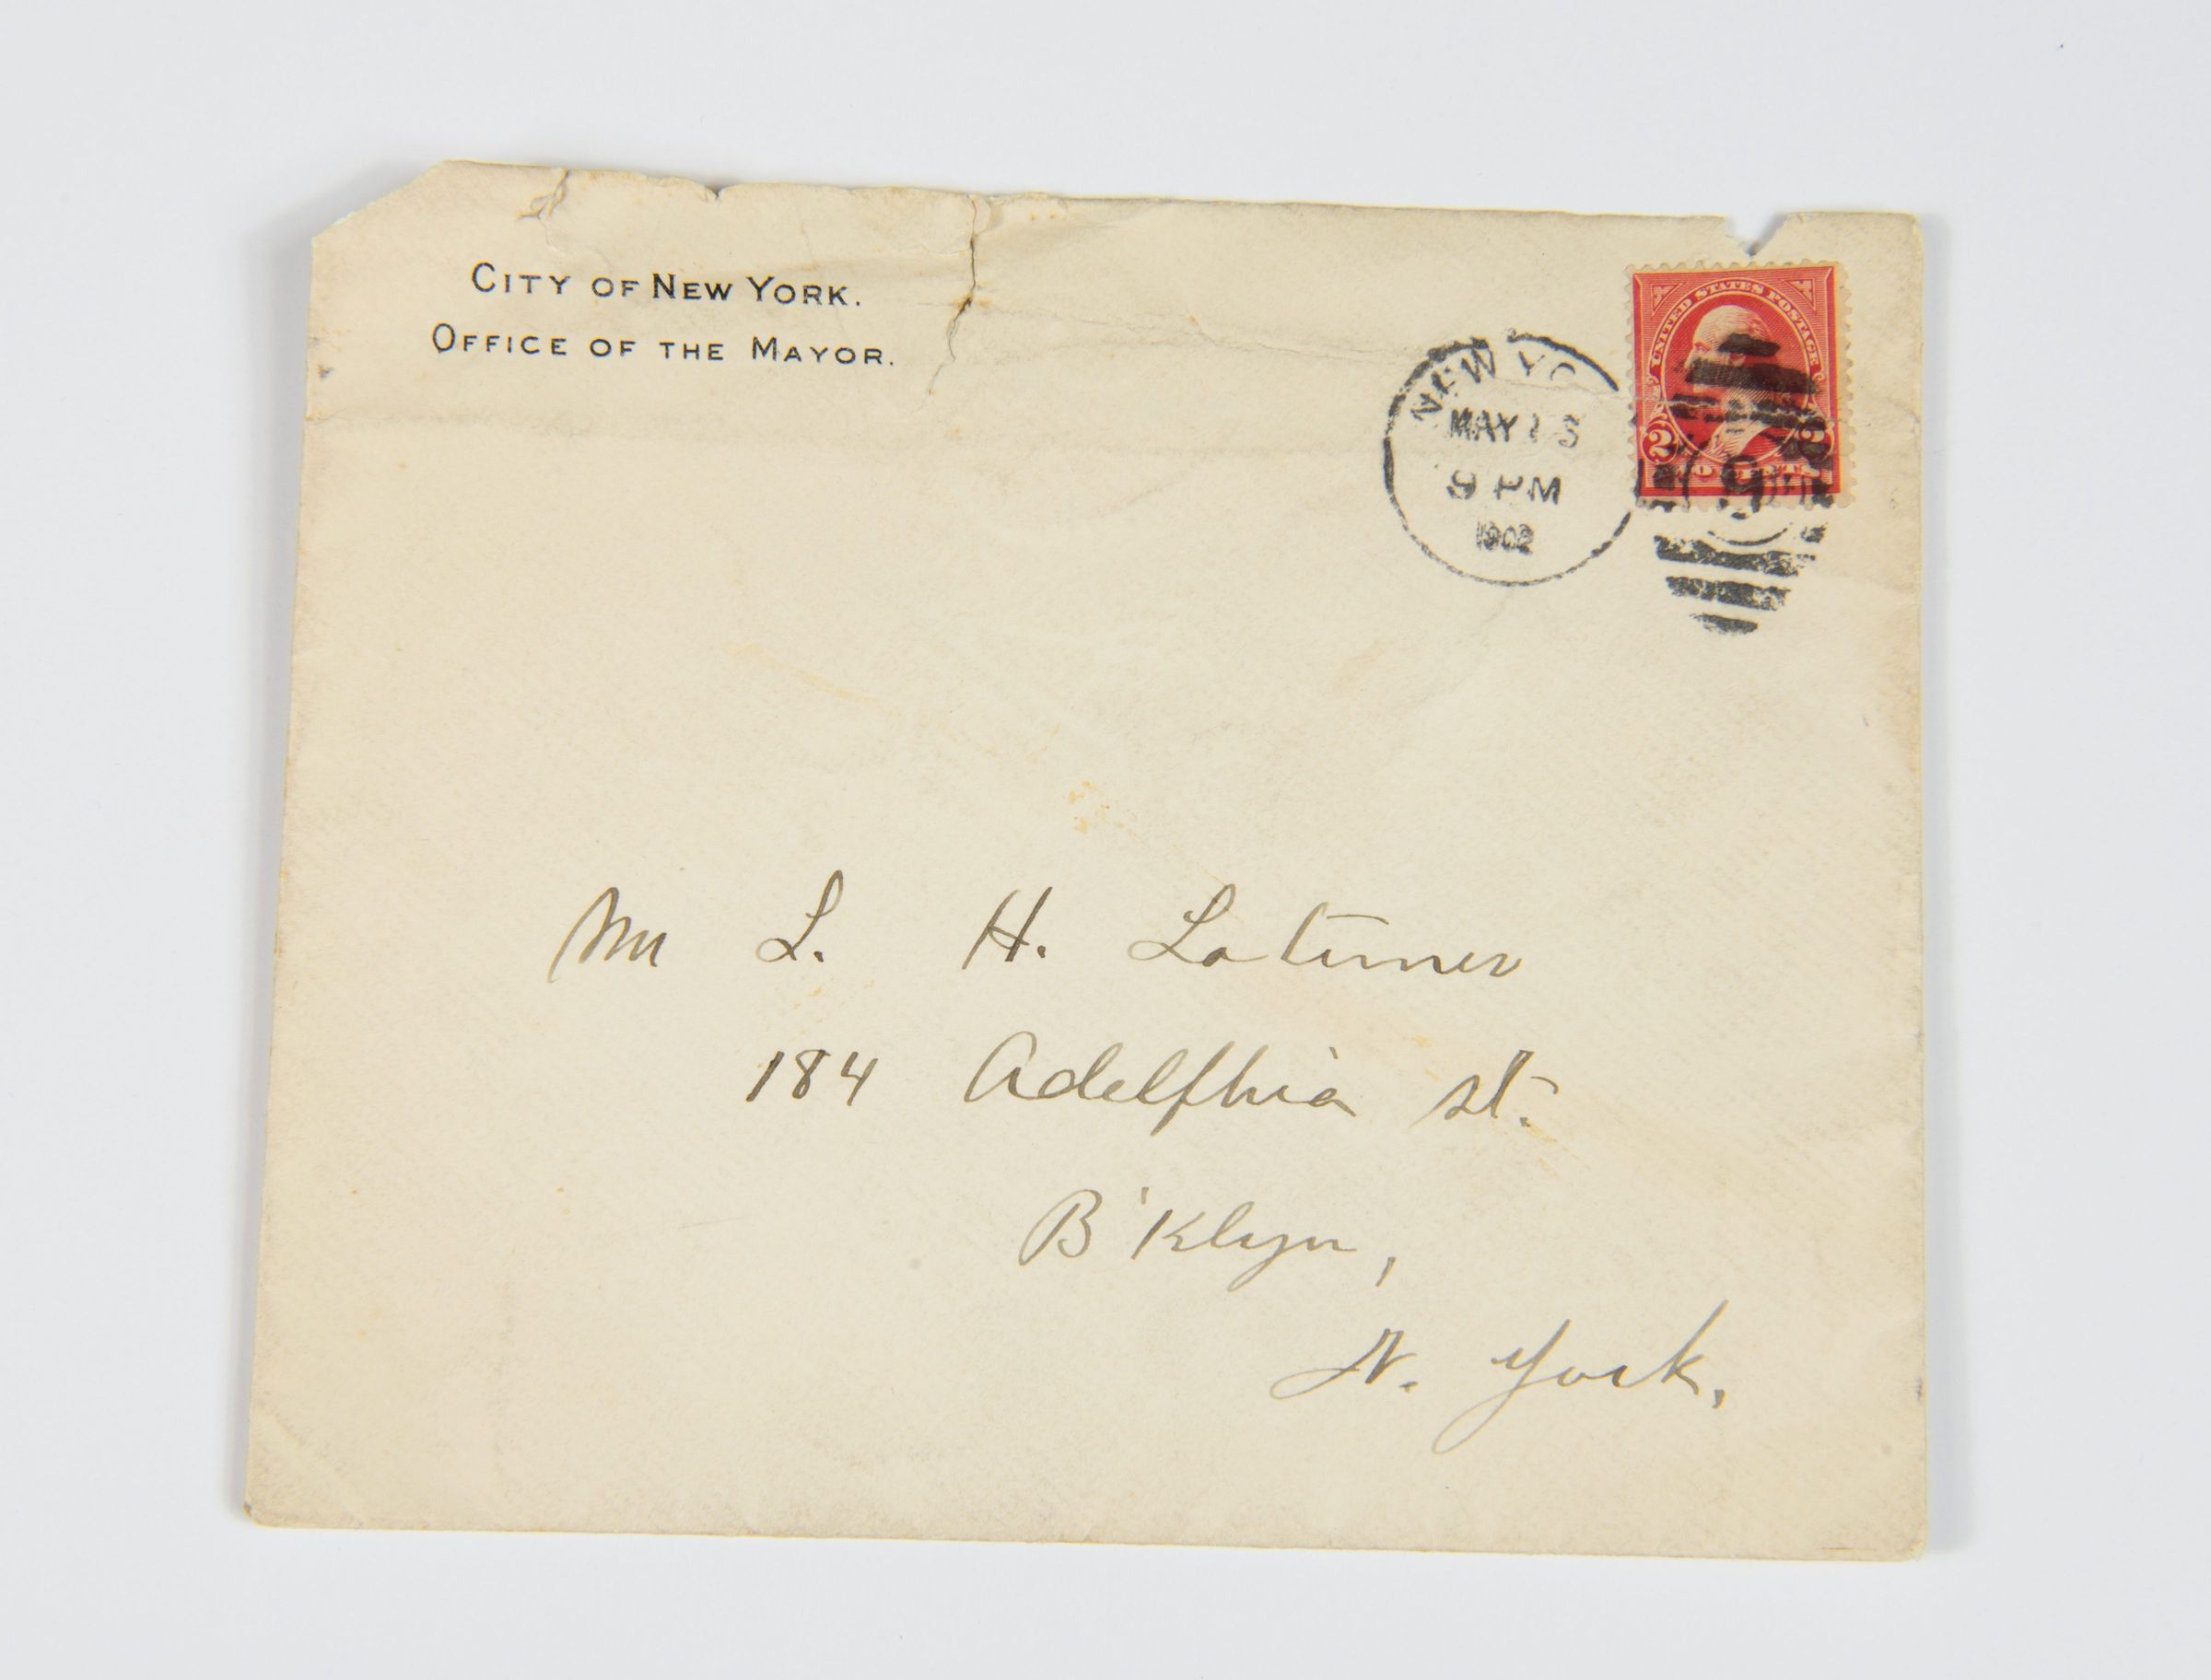 CITY OF NEW YORK.
OFFICE OF THE MAYOR.
UNITED STATES POSTAGE
2 2
TWO CENTS
NEW YO
MAY 13
9 PM
1902
Mr L. H. Latimer
184 Adelphia st.
B'klyn,
N. York.